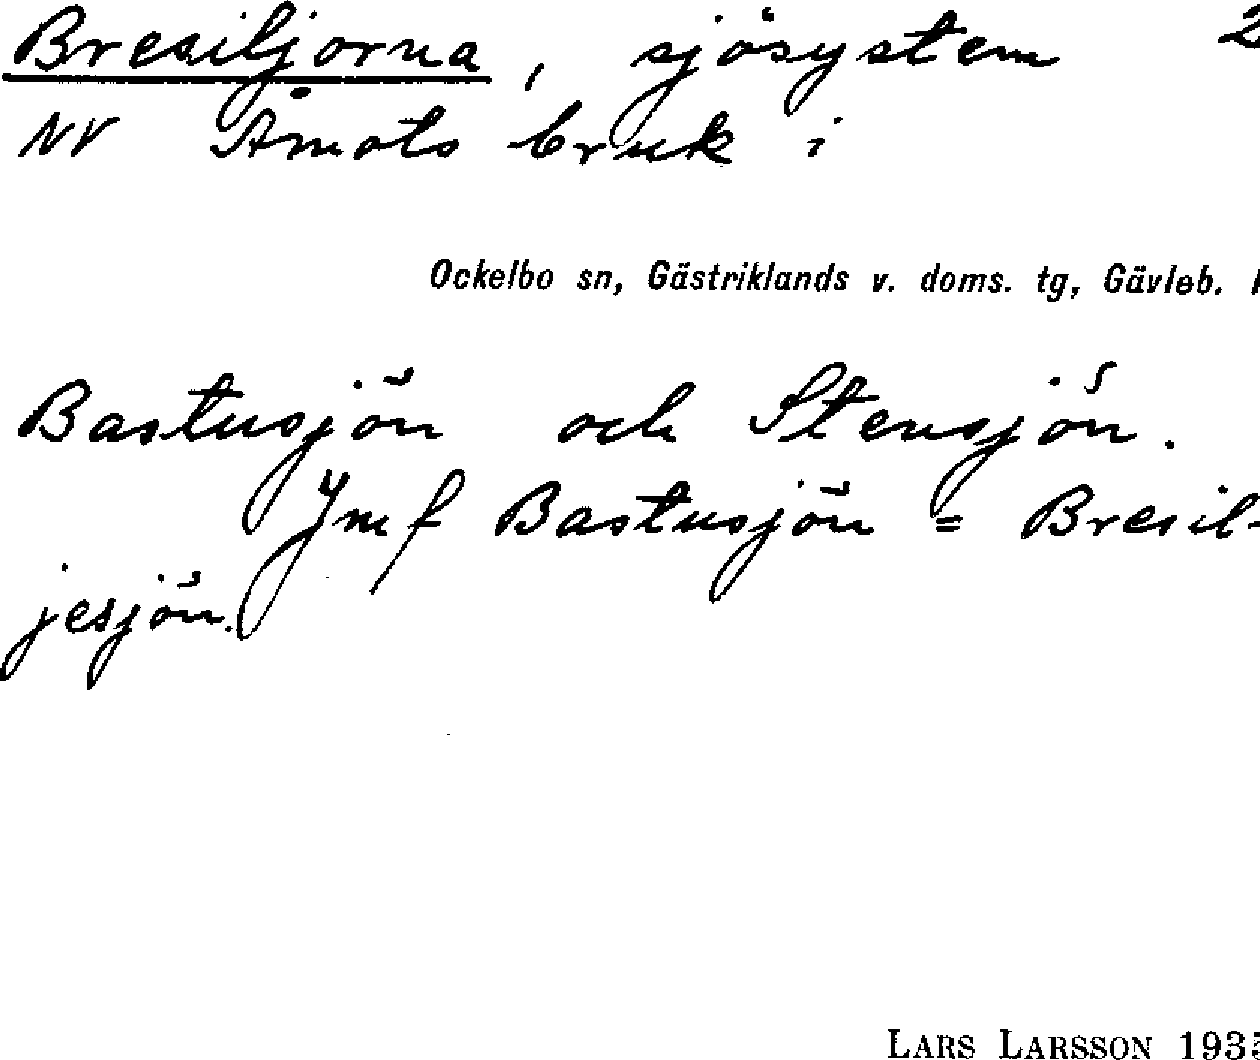 Bresiljorna, sjösystem 2
NV Åmots bruk i
Ockelbo sn, Gästriklands v. doms. tg, Gävleb.
Bastusjön och Stensjön.
Jmf Bastusjön = Bresil-
jesjön.
LARS LARSSON 193